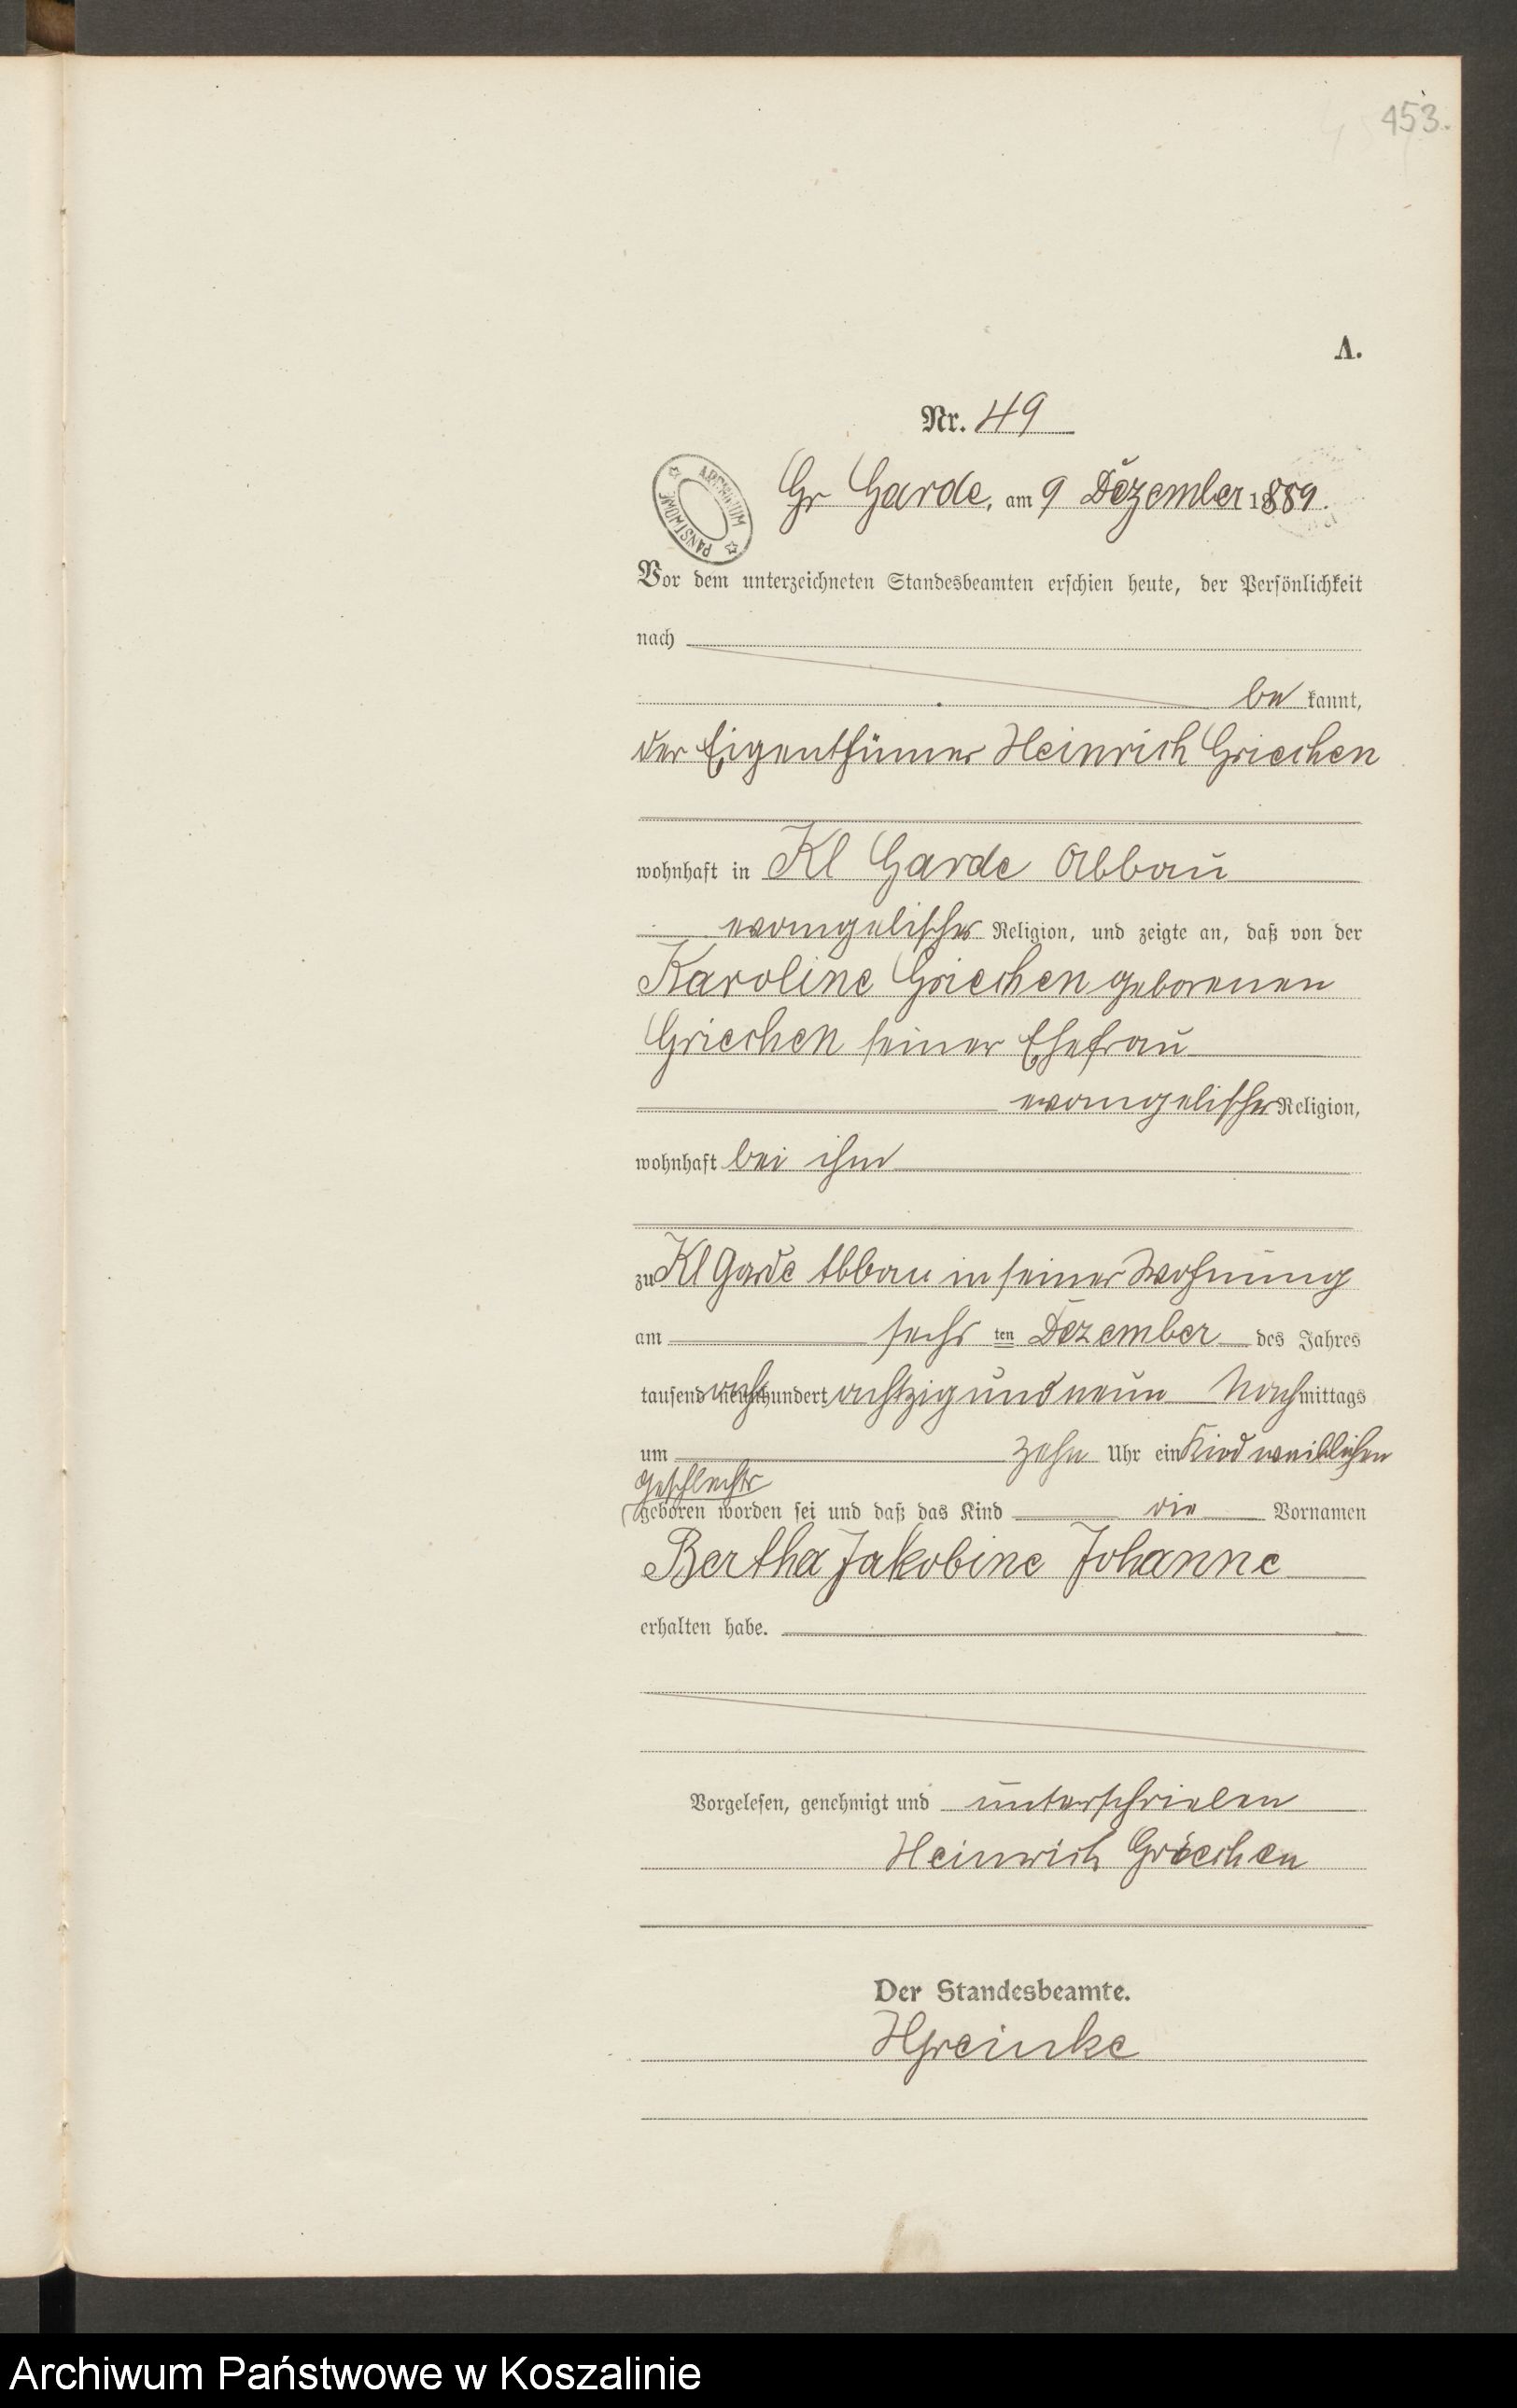 453.
A.
Nr. 49
Gr Garde, am 9 Dezember 1889.
ARCHIWUM PAŃSTWOWE
Vor dem unterzeichneten Standesbeamten erschien heute, der Persönlichkeit
nach
be kannt,
der Eigenthümer Heinrich Griechen
wohnhaft in Kl Garde Abbau
evangelischer Religion, und zeigte an, daß von der
Karoline Griechen geborenen
Griechen seiner Ehefrau
evangelischer Religion,
wohnhaft bei ihm
zu Kl Garde Abbau in seiner Wohnung
am sechs ten Dezember des Jahres
tausend acht hundert achtzig und neun Nachmittags
um zehn Uhr ein Kind weiblichen
Geschlechts
geboren worden sei und daß das Kind die Vornamen
Bertha Jakobine Johanne
erhalten habe.
Vorgelesen, genehmigt und unterschrieben
Heinrich Griechen
Der Standesbeamte.
Archiwum Państwowe w Koszalinie